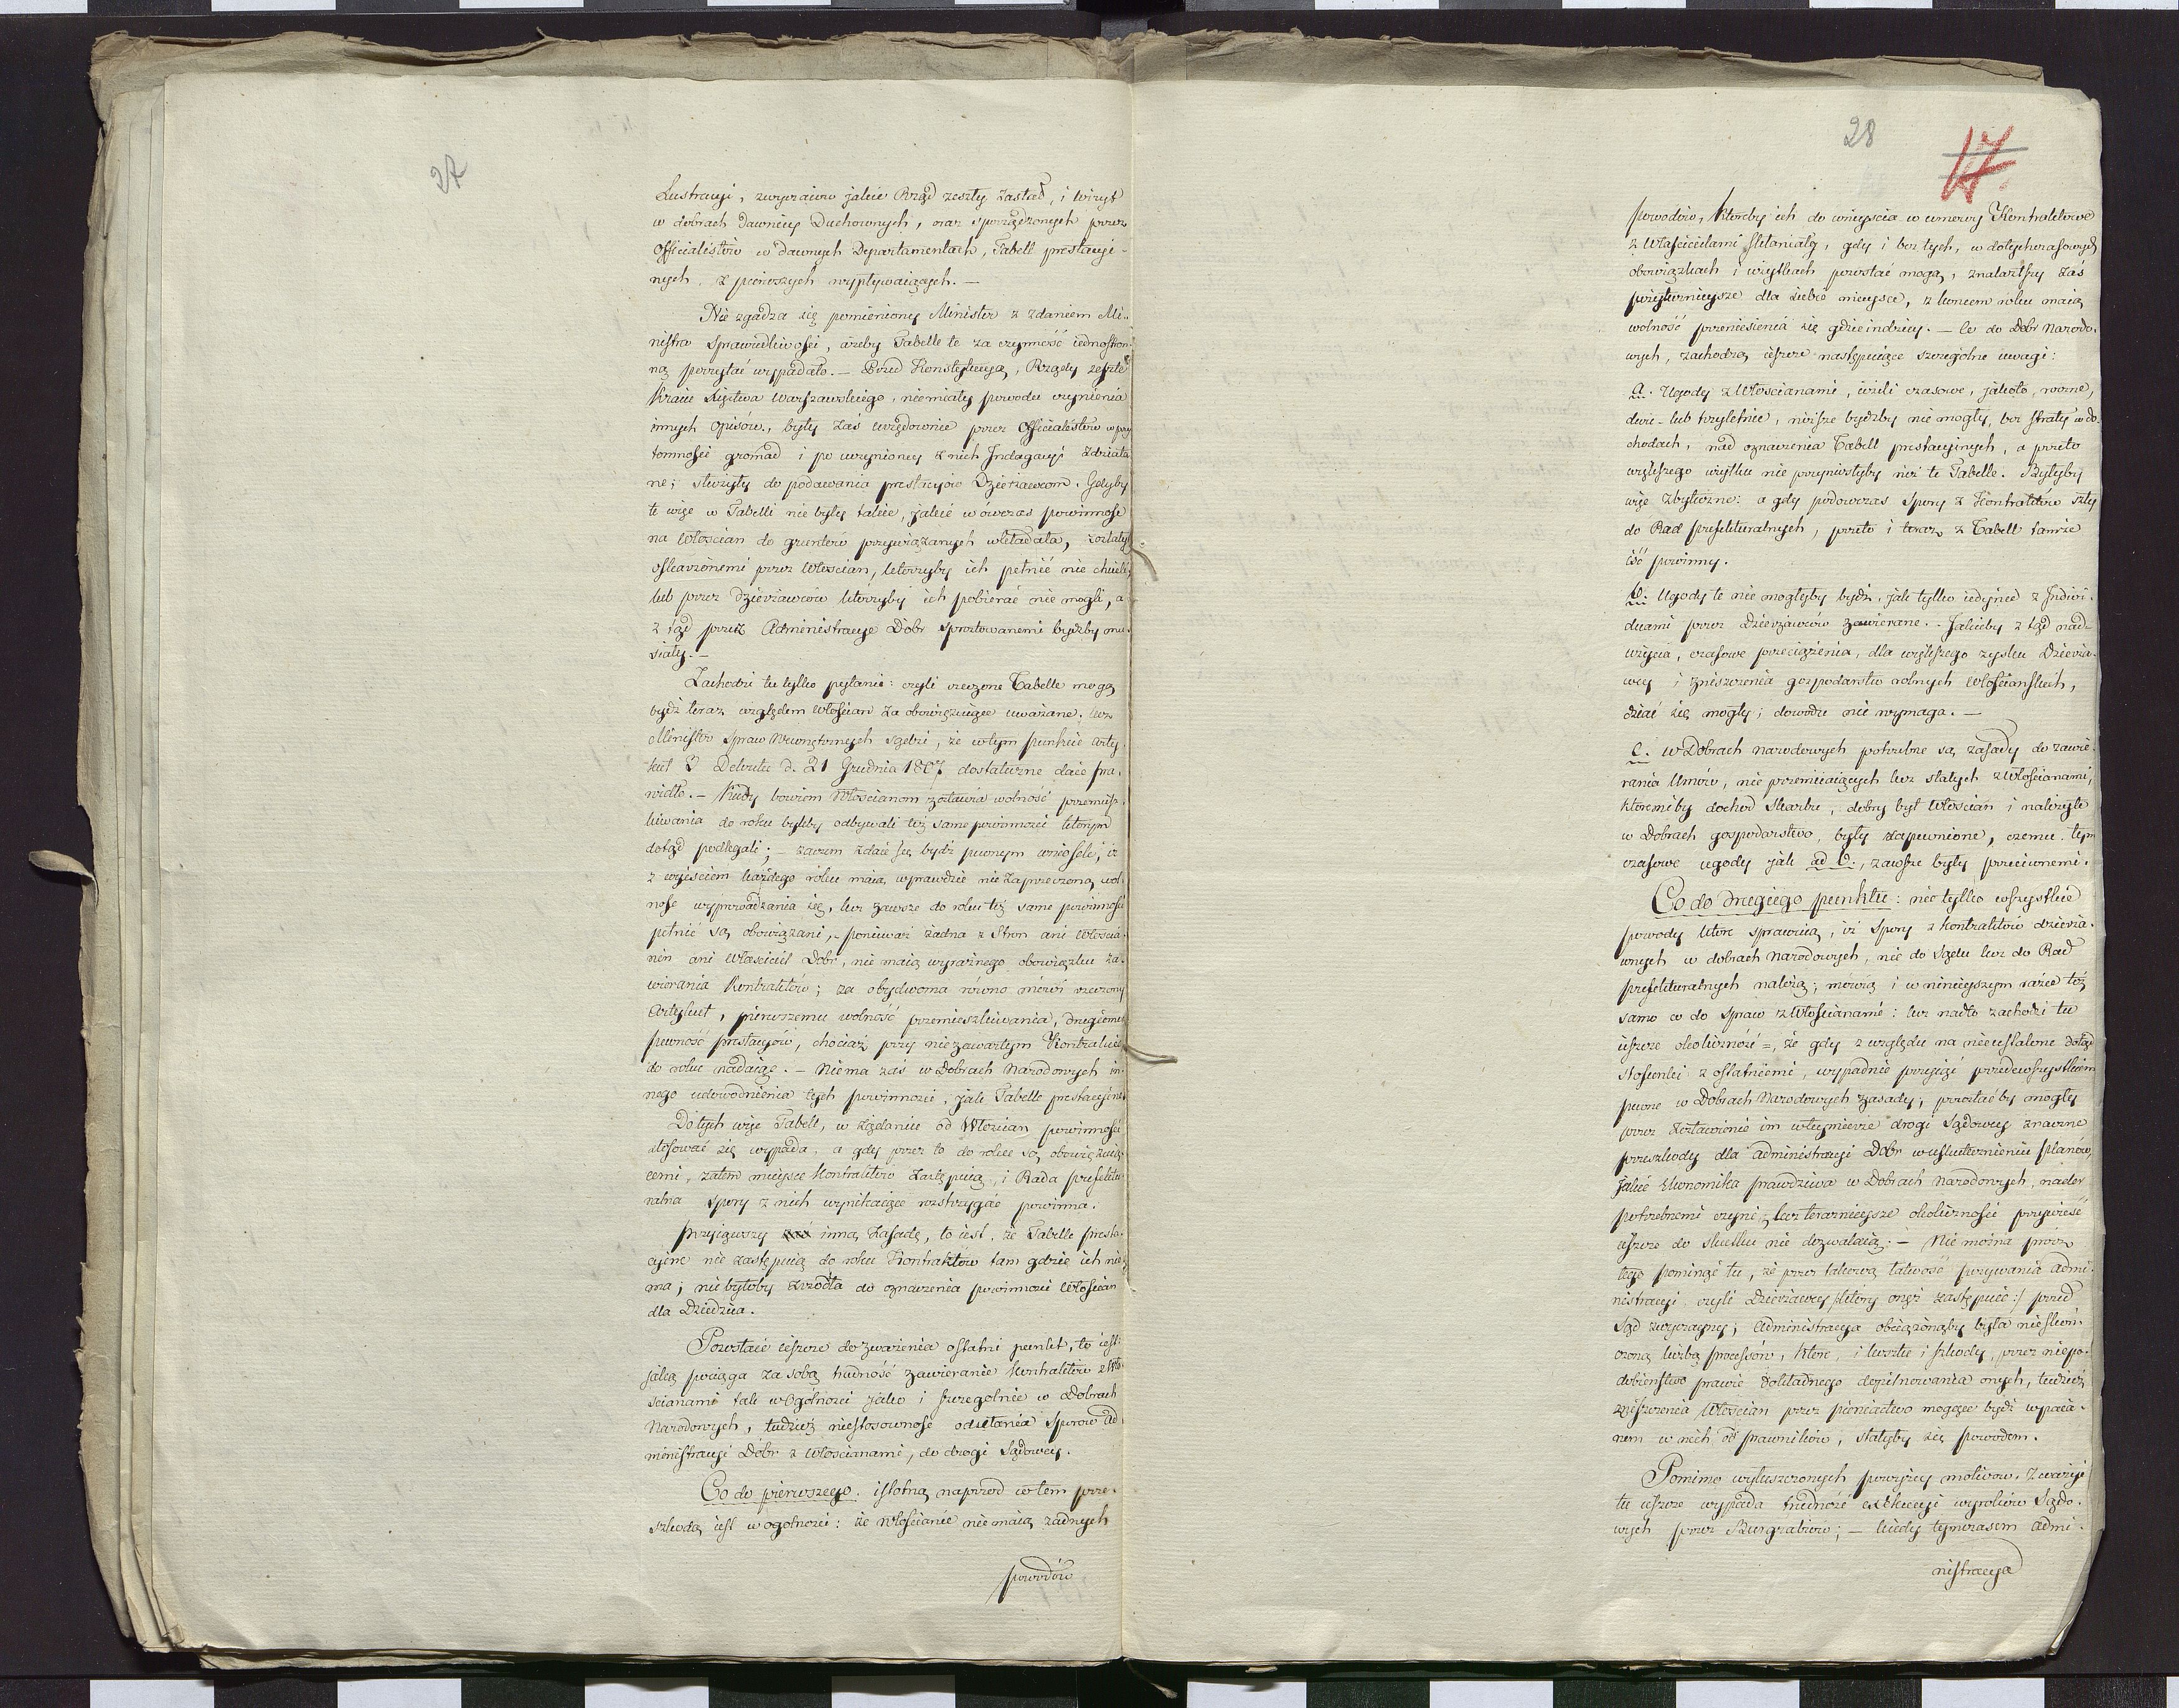 27
Lustracyi, zwyczaiow jakie Rząd zeszły zastał, i wizyt
w dobrach dawniey Duchownych, oraz sporządzonych przez
Officialistów w dawnych Departamentach, Tabell prestacyi-
nych, z pierwszych wypływaiących. —
Nie zgadza się pomieniony Minister z zdaniem Mi-
nistra Sprawiedliwości, ażeby Tabelle te za czynność iednostron-
ną poczytać wypadało. — Przed Konstytucyą, Rządy zeszłe
Kraiu Xięstwa Warszawskiego, niemiały powodu czynienia
innych opisów, były zaś urzędownie przez Officialistów w przy
tomności gromad i po uczynioney z nich Indagacyi zdziała
ne; służyły do podawania prestacyów Dzierżawcom. Gdyby
te więc w Tabelli nie były takie, jakie w ówczas powinność
na Włoscian do gruntów przywiązanych wkładała, zostały
oskarżonemi przez Włoscian, którzyby ich pełnić nie chcieli,
lub przez dzierżawców którzyby ich pobierać nie mogli, a
z tąd przez Administracye Dobr sprostowanemi bydźby mu-
siały. —
Zachodzi tu tylko pytanie: czyli rzeczone Tabelle mogą
bydź teraz względem Włoscian za obowięzuiące uważane. lecz
Minister Spraw Wewnętrznych sądzi, że w tym punkcie Arty-
kuł 2 Dekretu d. 21 Grudnia 1807 dostateczne daie pra-
widło. — Kiedy bowiem Włoscianom zostawia wolność przemiesz-
kiwania do roku byleby odbywali też same powinności którym
dotąd podlegali; — zaczem zdaie się bydź pewnym wniosek, iż
z wyiściem każdego roku maią wprawdzie nie zaprzeczoną wol-
ność wyprowadzania się, lecz zawsze do roku też same powinności
pełnić są obowiązani, — ponieważ żadna z Stron ani Włościa-
nin ani Właściciel Dobr, nie maią wyraźnego obowiązku za-
wierania Kontraktów; za obydwoma równo mówi rzeczony
Artykuł, pierwszemu wolność przemieszkiwania, drugiemu
pewność prestacyów, chociaż przy niezawartym Kontrakcie
do roku nadaiąc. — Niema zaś w Dobrach Narodowych in-
nego udowodnienia tych powinności, jak Tabelle prestacyine.
Do tych więc Tabell, w żądaniu od Włoscian powinności
stosować się wypada, a gdy przez to do roku są obowięzuią-
cemi, zatem mieysce Kontraktów zastępuią, i Rada prefektu-
ralna spory z nich wynikaiące rozstrzygać powinna.
Przyiąwszy inną Zasadę, to iest, że Tabelle presta-
cyine nie zastępuią do roku Kontraktów tam gdzie ich nie-
ma; nie byłoby źrzódła do oznaczenia powinności Włościan
dla Dziedzica.
Pozostaie ieszcze do zważenia ostatni punkt, to iest:
jaką pociąga za sobą trudność zawieranie Kontraktów z Wło-
ścianami tak w Ogólności jako i szczególnie w Dobrach
Narodowych, tudzież niestosowność odsełania sporow Ad
ministracyi Dobr z Włoscianami, do drogi Sądowey.
Co do pierwszego. istotną naprzod w tem prze-
szkodą iest w ogolności: że Włościanie nie maią żadnych
powodów
28
17.
powodów, któreby ich do weyścia w umowy Kontraktowe
z Właścicielami skłaniały, gdy i bez tych, w dotychczasowych
obowiązkach i użytkach pozostać mogą, znalazłszy zaś
pożyteczniejsze dla siebie mieysce, z końcem roku maią
wolność przeniesienia się gdzieindziey. — Co do Dobr Narodo-
wych, zachodzą ieszcze następuiące szczególne uwagi:
a. Ugody z Włościanami, iżeli czasowe, jakoto, roczne,
dwu- lub trzyletnie, niższe bydźby nie mogły, bez straty w do-
chodach, nad oznaczenia Tabell prestacyinych, a przeto
większego użytku nie przyniosłyby niż te Tabelle. Byłyby
więc zbyteczne: a gdy podowczas spory z Kontraktów szły
do Rad prefekturalnych, przeto i teraz z Tabell tamże
iść powinny.
b. Ugody te nie mogłyby bydź, jak tylko iedynie z Indiwi-
duami przez Dzierżawców zawierane. — Jakieby z tąd nad-
użycia, czasowe przeciążenia, dla większego zysku Dzierża-
wcy i zniszczenia gospodarstw rolnych Włościańskich,
dziać się mogły; dowodu nie wymaga. —
c. W Dobrach Narodowych potrzebne są zasady do zawie-
rania Umów, nie przemiiaiących lecz stałych z Włościanami,
któremiby dochod Skarbu, dobry byt Włoscian i należyte
w Dobrach gospodarstwo, były zapewnione, czemu tym
czasowe ugody jak ad b., zawsze były przeciwnemi.
Co do drugiego punktu: nie tylko wszystkie
powody które sprawuią, iż spory z kontraktów dzierża-
wnych w dobrach Narodowych, nie do Sądu lecz do Rad
prefekturalnych należą; mówią i w ninieyszym razie toż
samo co do spraw z Włościanami: lecz nadto zachodzi tu
ieszcze okoliczność =, że gdy z względu na nieustalone dotąd
stosunki z ostatniemi, wypadnie przyiąć przedewszystkiem
pewne w Dobrach Narodowych zasady, powstaćby mogły
przez zostawienie im w teymierze drogi Sądowey znaczne
przeszkody dla administracyi Dobr w uskutecznieniu planów,
jakie Ekonomika prawdziwa w Dobrach Narodowych, nader
potrzebnemi czyni, lecz teraznieysze okoliczności przywieść
ieszcze do skutku nie dozwalaią. — Nie można procz
tego pominąć tu, że przez takową łatwość pozywania admi-
nistracyi czyli Dzierżawcy /:który onęż zastępuie:/ przed
Sąd zwyczayny; Administracya obciążonąby była nieskoń-
czoną liczbą processów, które, i koszta i szkody, przez niepo-
dobieństwo prawie dokładnego dopilnowania onych, tudzież
zniszczenia Włoscian przez pieniactwo mogące bydź wpaia-
nem w nich od prawników, stałyby się powodem.
Pomimo wyłuszczonych powyżey motivow, zważyć
tu ieszcze wypada trudność exekucyi wyroków Sądo-
wych przez Burgrabiów; — kiedy tymczasem Admi-
nistracya